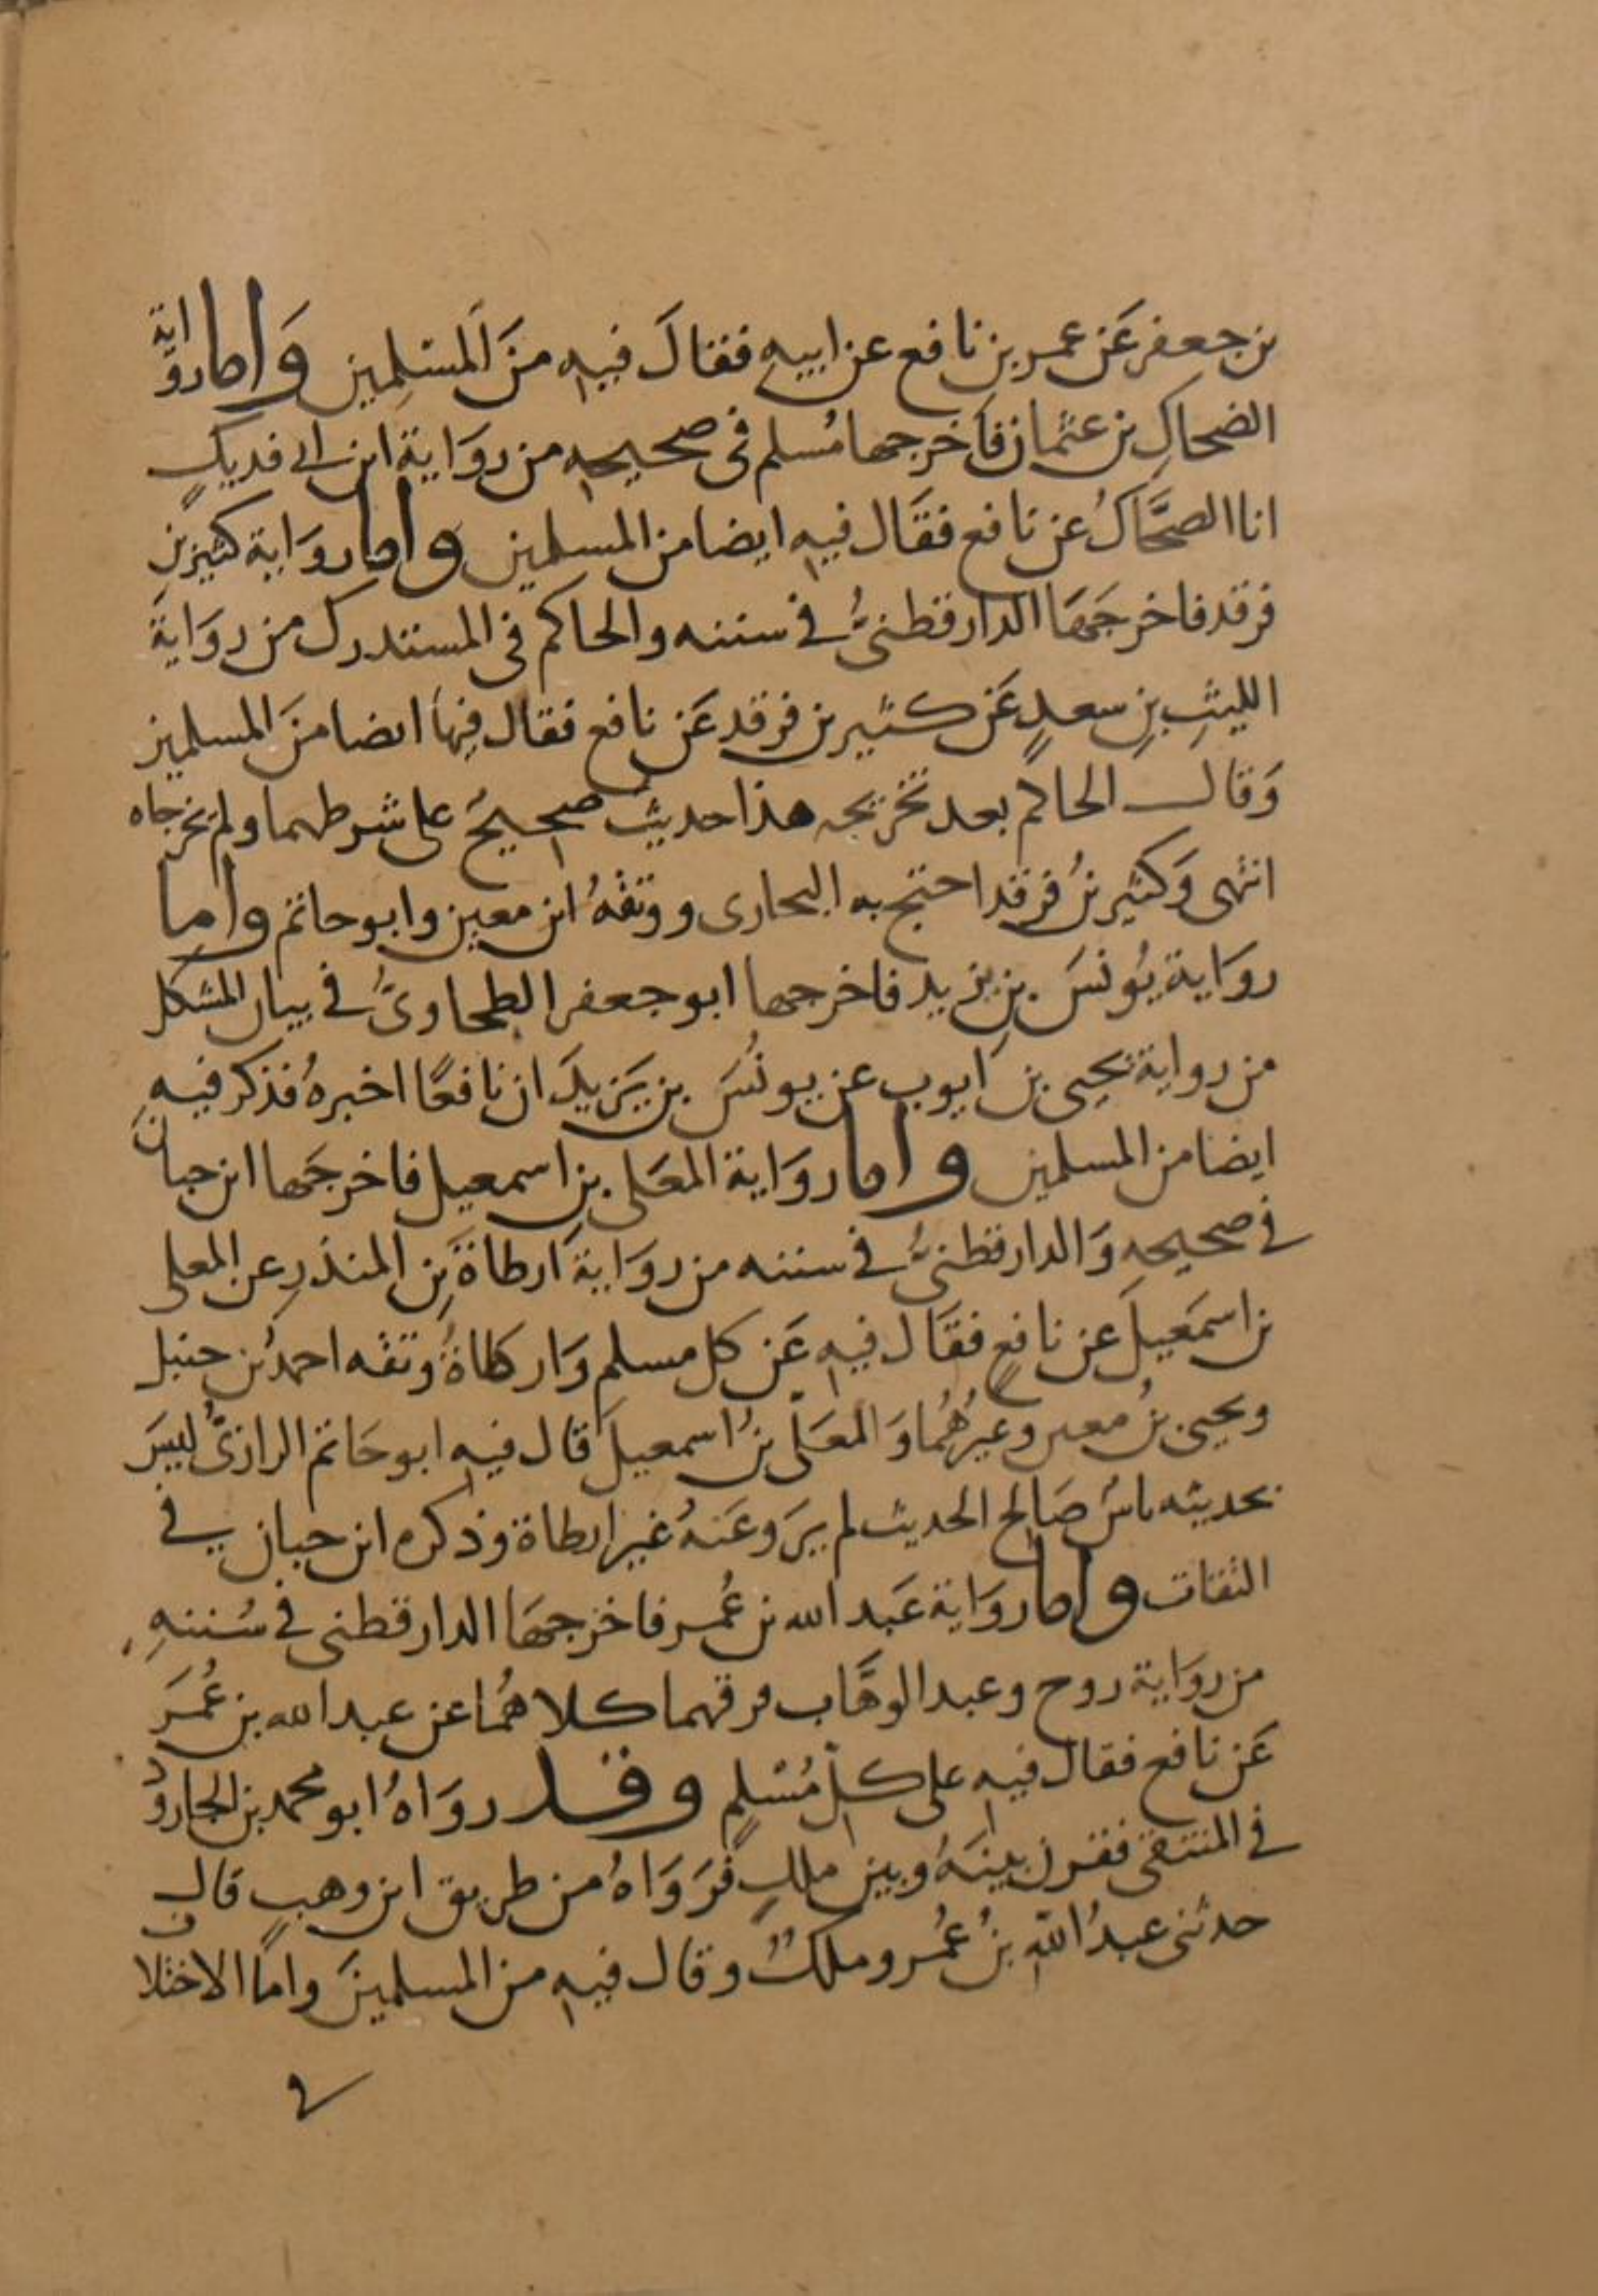 بن جعفر عَن عمر بن نافع عن ابيه فقال فيه منَ المسْلِمين وَاما روَاية
الضحاكِ بن عثمان فاَخرجها مُسلم فى صحيحه من روَاية ابن ابى فديكٍ
انا الضحَّاكُ عن نافع فقَال فيه ايضا من المسلمين واما روَاية كثير بنِ
فرقد فاخرجَهَا الدارقطنىُّ فى سننه والحاكم فى المستدرك من روَاية
الليثِ بنِ سعدٍ عَن كثير بن فرقد عَن نافع فقال فيها ايضا منَ المسلمين
وَقال الحاكم بعد تخريجه هذا حديث صحيحٌ على شرطهما ولم يخرجاه
انتهى وَكثير بنُ فرقد احتج به البخارى ووثقهُ ابن معين وابو حاتم واما
روَاية يُونسَ بنِ يزيد فاخرجها ابو جعفر الطحاوىُّ فى بيان المشكل
من رواية يحيى بن ايوب عن يونُسَ بن يَزيدَ ان نافعًا اخبرهُ فذكر فيهِ
ايضا من المسلمين واما روَاية المعَلى بنِ اسمعيل فاخرجَها ابن حبان
فى صحيحهِ وَالدارقطنىُّ فى سننه من روَاية اَرطاةَ بنِ المنذرِ عن المعلى
بن اسمَعيلَ عن نافعٍ فقَال فيه عَن كل مسلمٍ وَارطاةُ وثقه احمدُ بن حنبل
ويحيى بنُ معين وغيرُهُما وَالمعَلّى بنُ اسمعيلَ قال فيه ابو حَاتم الرازىُّ ليسَ
بحديثه باسٌ صَالح الحديث لم يروِ عَنهُ غير ارطاة وذكره ابن حبان فى
الثقات واما روَاية عَبد الله بن عُمر فاخرجهَا الدارقطنى فى سُننهِ
من روَاية روح وعبد الوهَّاب فرقهما كلاهُما عن عبد الله بن عُمَرَ
عَن نافع فقال فيه على كلّ مُسْلمٍ وقد روَاهُ ابو محمد بن الجارود
فى المنتقى فقرن بينَهُ وبين ملكٍ فرَوَاهُ من طريق ابن وهبٍ قال
حدثنى عبدُ اللهِ بنُ عُمر وملكٌ وقال فيه من المسلمينَ وامّا الاختلاف